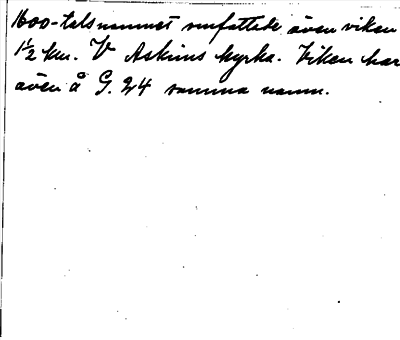 1600-talsnamnet omfattade även viken
1½ km. V Askims kyrka. Viken har
även å G. 24 samma namn.